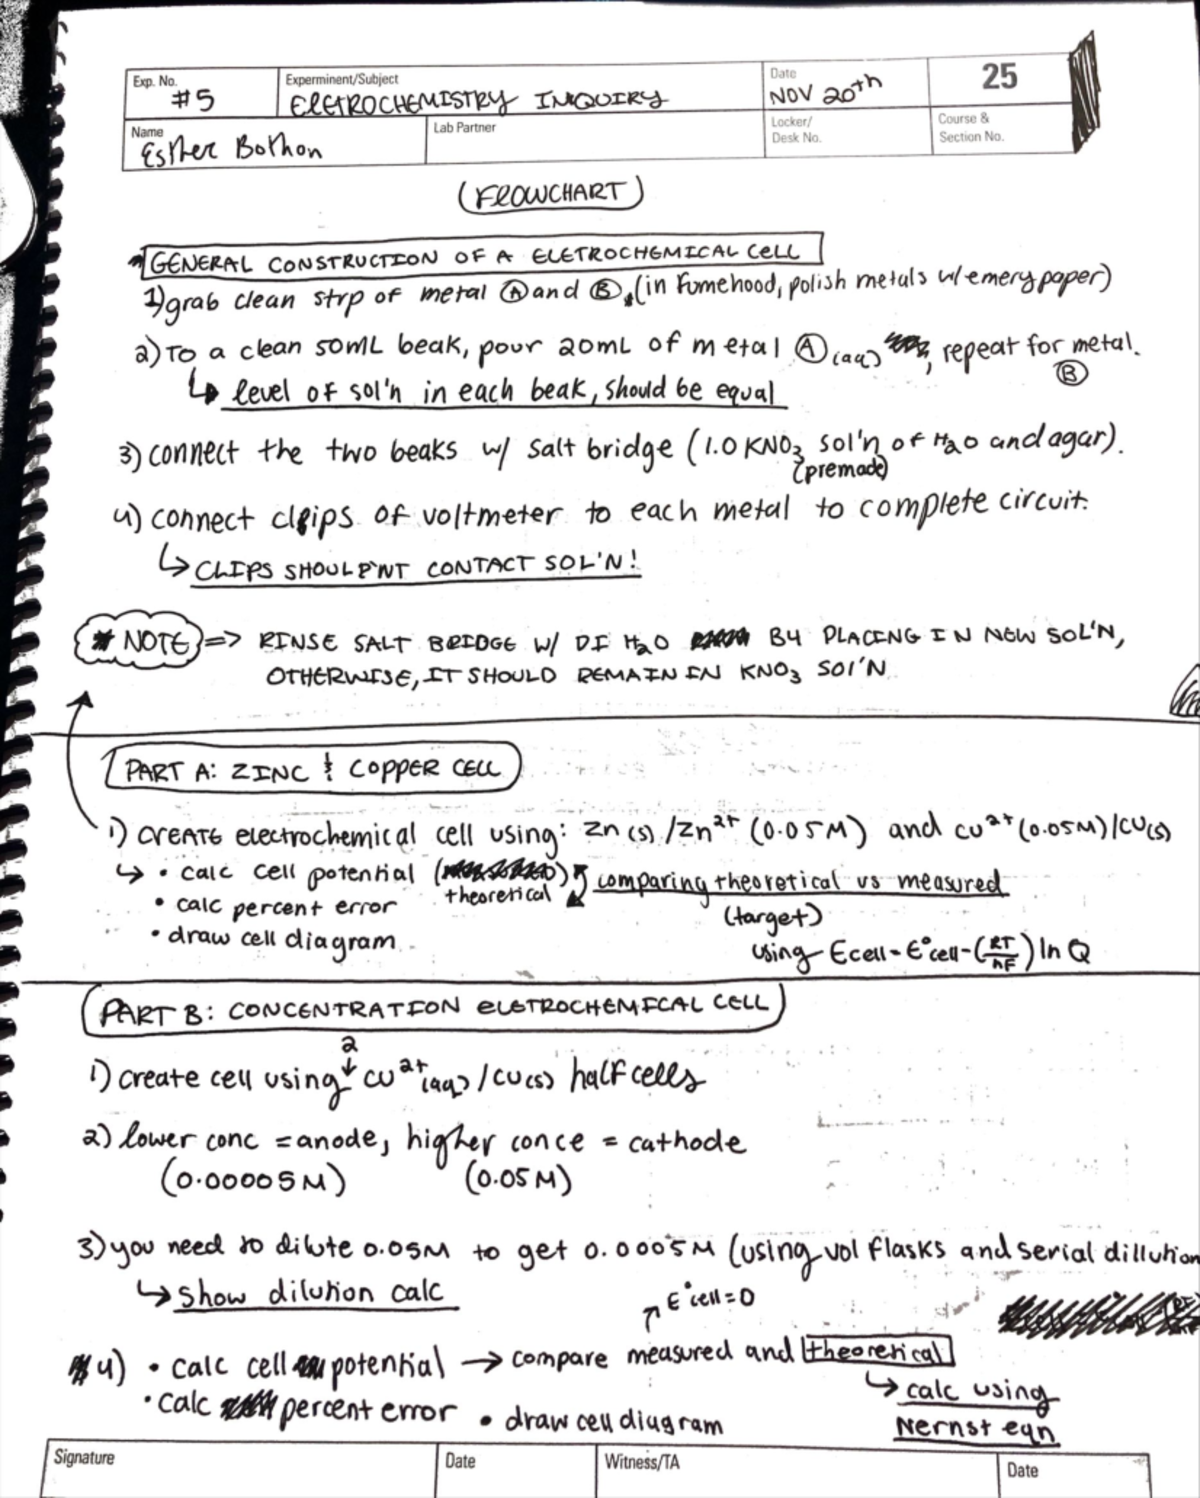 Exp. No. #5
Experminent/Subject ElETROCHEMISTRY INQUIRY
Date NOV 20th
25
Name Esther Bothon
Lab Partner
Locker/ Desk No.
Course & Section No.
(FLOWCHART)
GENERAL CONSTRUCTION OF A ELETROCHEMICAL CELL
1) grab clean strp of metal Ⓐ and Ⓑ, (in fumehood, polish metals w/ emery paper)
2) To a clean 50mL beak, pour 20mL of metal Ⓐ (aq), repeat for metal.
Ⓑ
↳ level of sol'n in each beak, should be equal
3) connect the two beaks w/ salt bridge (1.0 KNO3 sol'n of H2O and agar).
(premade)
4) connect clips of voltmeter to each metal to complete circuit.
↳ CLIPS SHOULDN'T CONTACT SOL'N!
* NOTE => RINSE SALT BRIDGE W/ DI H2O B4 PLACING IN NEW SOL'N,
OTHERWISE, IT SHOULD REMAIN IN KNO3 SOl'N
PART A: ZINC & COPPER CELL
1) CREATE electrochemical cell using: Zn(s)/Zn²⁺ (0.05M) and Cu²⁺(0.05M)/Cu(s)
↳ • calc cell potential (theoretical) comparing theoretical vs measured
• calc percent error
(target)
• draw cell diagram
using Ecell = E°cell - (RT/nF) ln Q
PART B: CONCENTRATION ELETROCHEMICAL CELL
2
1) create cell using ↓ Cu²⁺(aq)/Cu(s) half cells
2) lower conc = anode, higher conce = cathode
(0.00005M) (0.05M)
3) you need to dilute 0.05M to get 0.0005M (using vol flasks and serial dillution
↳ show dilution calc
↗ E°cell = 0
4) • calc cell potential → compare measured and theoretical
↳ calc using
• calc percent error • draw cell diagram
Nernst eqn
Signature
Date
Witness/TA
Date